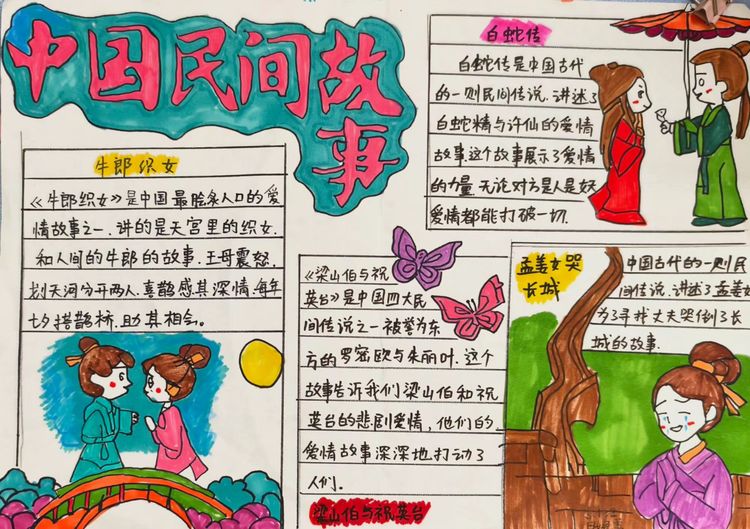 中国民间故事
牛郎织女
《牛郎织女》是中国最脍炙人口的爱
情故事之一.讲的是天宫里的织女.
和人间的牛郎的故事.王母震怒.
划天河分开两人.喜鹊感其深情.每年
七夕搭鹊桥.助其相会。
白蛇传
白蛇传是中国古代
的一则民间传说.讲述了
白蛇精与许仙的爱情
故事.这个故事展示了爱情
的力量.无论对方是人是妖
爱情都能打破一切.
《梁山伯与祝
英台》是中国四大民
间传说之一.被誉为东
方的罗密欧与朱丽叶.这个
故事告诉我们梁山伯和祝
英台的悲剧爱情,他们的.
爱情故事深深地打动了
人们.
梁山伯与祝英台
孟姜女哭
长城
中国古代的一则民
间传说.讲述了孟姜女
为了寻找丈夫哭倒了长
城的故事.